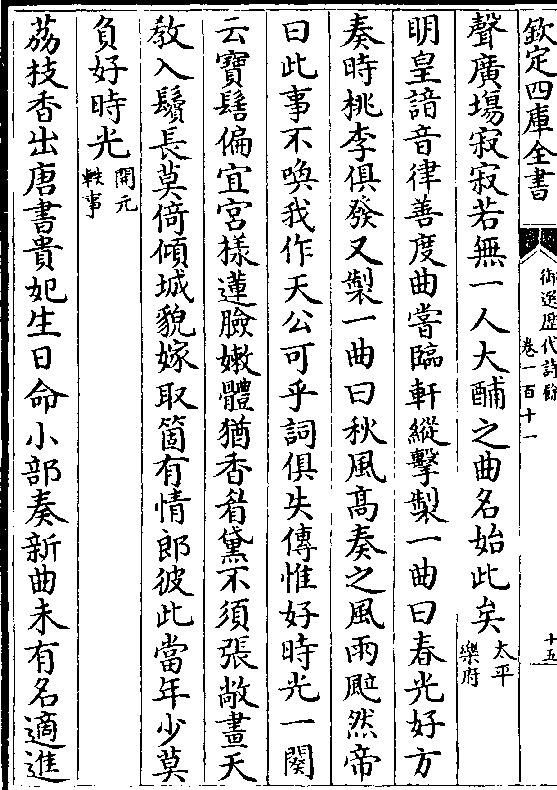 欽定四庫全書
御選歷代詩餘
卷一百十一
十五
聲廣場寂寂若無一人大酺之曲名始此矣太平
樂府
明皇諳音律善度曲嘗臨軒縱擊製一曲曰春光好方
奏時桃李俱發又製一曲曰秋風髙奏之風雨颯然帝
曰此事不喚我作天公可乎詞俱失傳惟好時光一闋
云寶髻偏宜宫様蓮臉嫩體猶香眉黛不須張敞畫天
敎入鬢長莫倚傾城貌嫁取箇有情郎彼此當年少莫
負好時光開元
軼事
荔枝香出唐書貴妃生日命小部奏新曲未有名適進